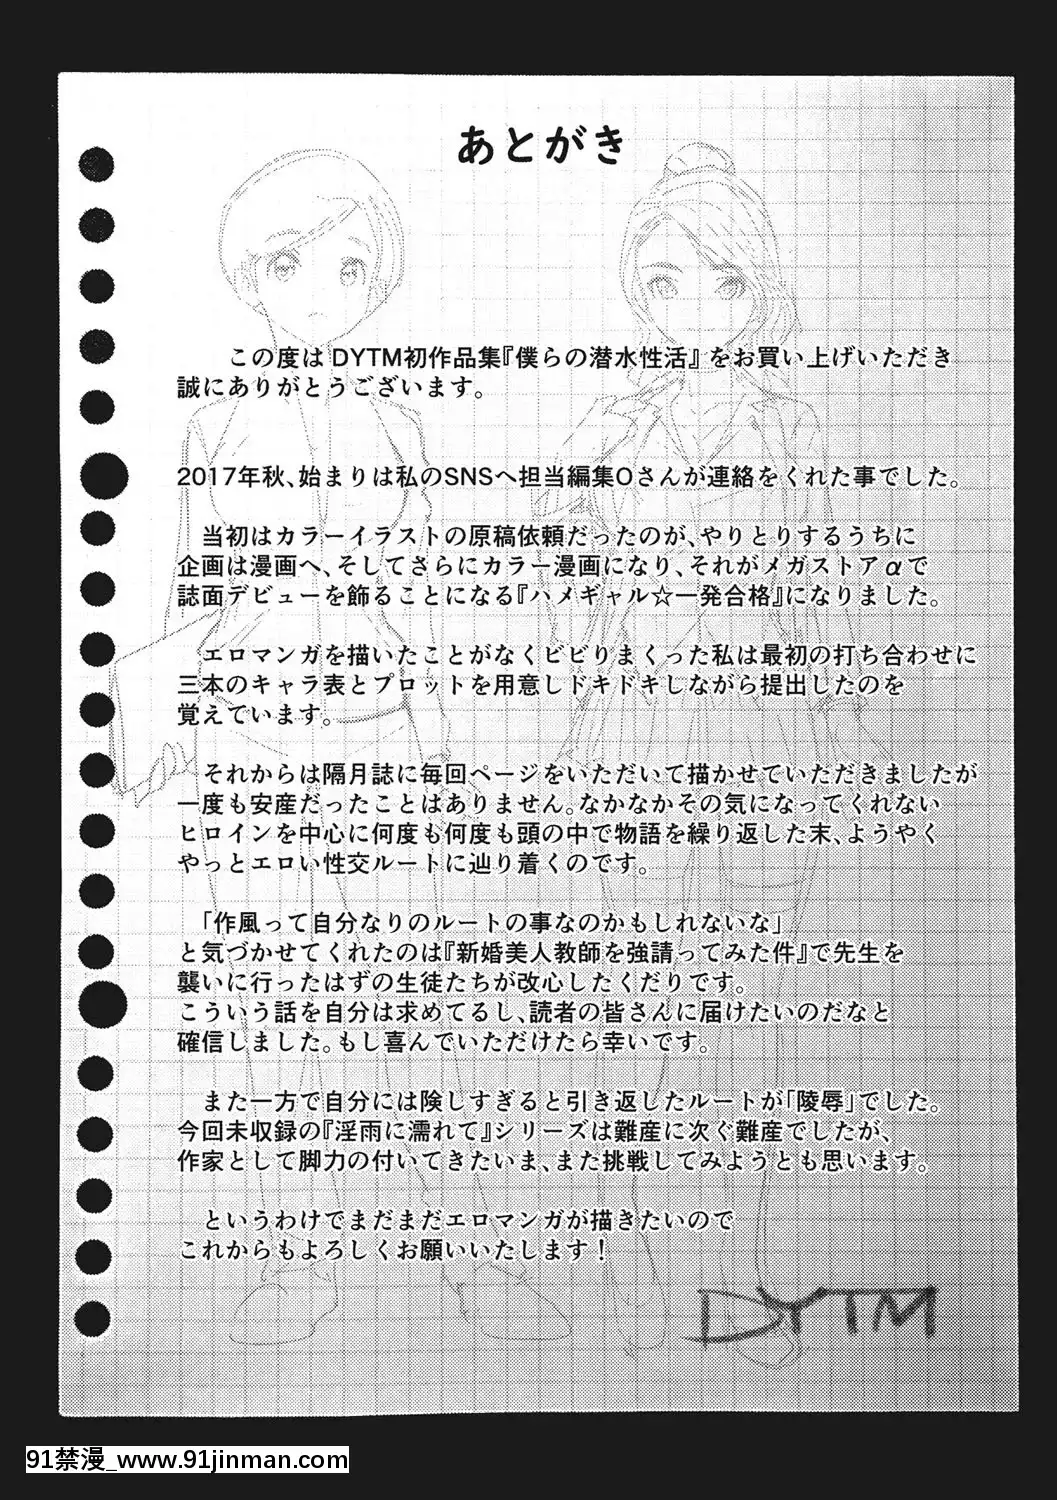 あとがき
この度はDYTM初作品集『僕らの潜水性活』をお買い上げいただき
誠にありがとうございます。
2017年秋、始まりは私のSNSへ担当編集Oさんが連絡をくれた事でした。
当初はカラーイラストの原稿依頼だったのが、やりとりするうちに
企画は漫画へ、そしてさらにカラー漫画になり、それがメガストアαで
誌面デビューを飾ることになる『ハメギャル☆一発合格』になりました。
エロマンガを描いたことがなくビビりまくった私は最初の打ち合わせに
三本のキャラ表とプロットを用意しドキドキしながら提出したのを
覚えています。
それからは隔月誌に毎回ページをいただいて描かせていただきましたが
一度も安産だったことはありません。なかなかその気になってくれない
ヒロインを中心に何度も何度も頭の中で物語を繰り返した末、ようやく
やっとエロい性交ルートに辿り着くのです。
「作風って自分なりのルートの事なのかもしれないな」
と気づかせてくれたのは『新婚美人教師を強請ってみた件』で先生を
襲いに行ったはずの生徒たちが改心したくだりです。
こういう話を自分は求めてるし、読者の皆さんに届けたいのだなと
確信しました。もし喜んでいただけたら幸いです。
また一方で自分には険しすぎると引き返したルートが「陵辱」でした。
今回未収録の『淫雨に濡れて』シリーズは難産に次ぐ難産でしたが、
作家として脚力の付いてきたいま、また挑戦してみようとも思います。
というわけでまだまだエロマンガが描きたいので
これからもよろしくお願いいたします！
DYTM
91禁漫_www.91jinman.com